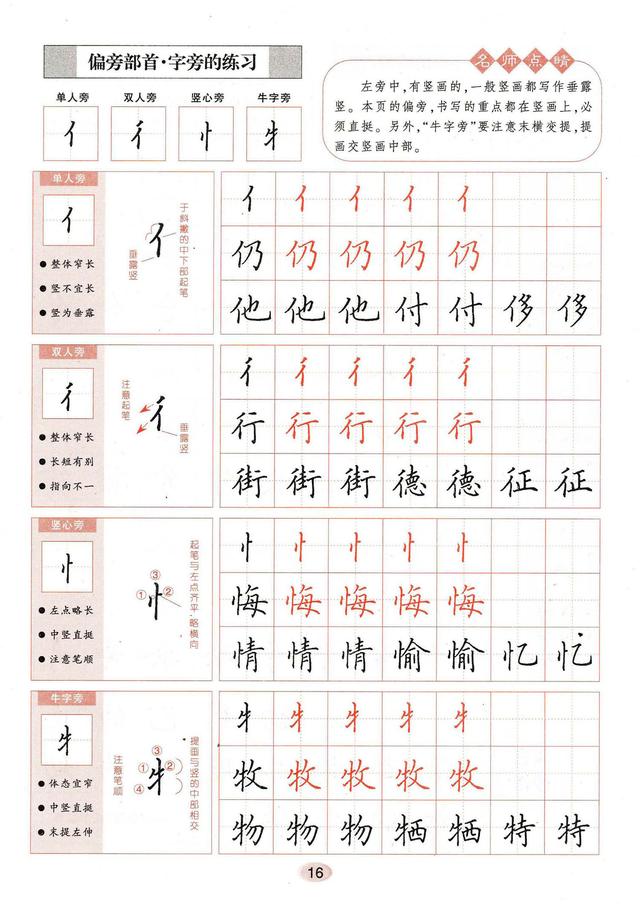 偏旁部首·字旁的练习
名师点睛
左旁中,有竖画的,一般竖画都写作垂露
竖。本页的偏旁,书写的重点都在竖画上,必
须直挺。另外,“牛字旁”要注意末横变提,提
画交竖画中部。
单人旁 双人旁 竖心旁 牛字旁
亻 彳 忄 牜
单人旁
亻
● 整体窄长
● 竖不宜长
● 竖为垂露
于斜撇的中下部起笔
亻
垂露竖
亻 亻 亻 亻 亻
仍 仍 仍 仍 仍
他 他 他 付 付 侈 侈
双人旁
彳
● 整体窄长
● 长短有别
● 指向不一
注意起笔
彳
垂露竖
彳 彳 彳 彳 彳
行 行 行 行 行
街 街 街 德 德 征 征
竖心旁
忄
● 左点略长
● 中竖直挺
● 注意笔顺
起笔与左点齐平,略横向
① ③ ②
忄
忄 忄 忄 忄 忄
悔 悔 悔 悔 悔
情 情 情 愉 愉 忆 忆
牛字旁
牜
● 体态宜窄
● 中竖直挺
● 末提左伸
注意笔顺
① ③ ② ④
牜
提画与竖的中部相交
牜 牜 牜 牜 牜
牧 牧 牧 牧 牧
物 物 物 牺 牺 特 特
16